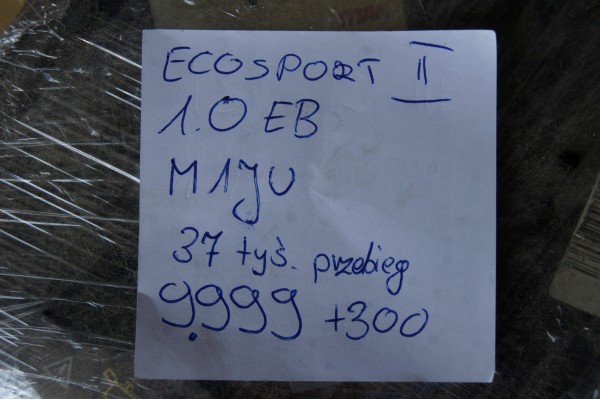 ECOSPORT II
1.0 EB
M1JU
37 tyś. przebieg
9.999 +300